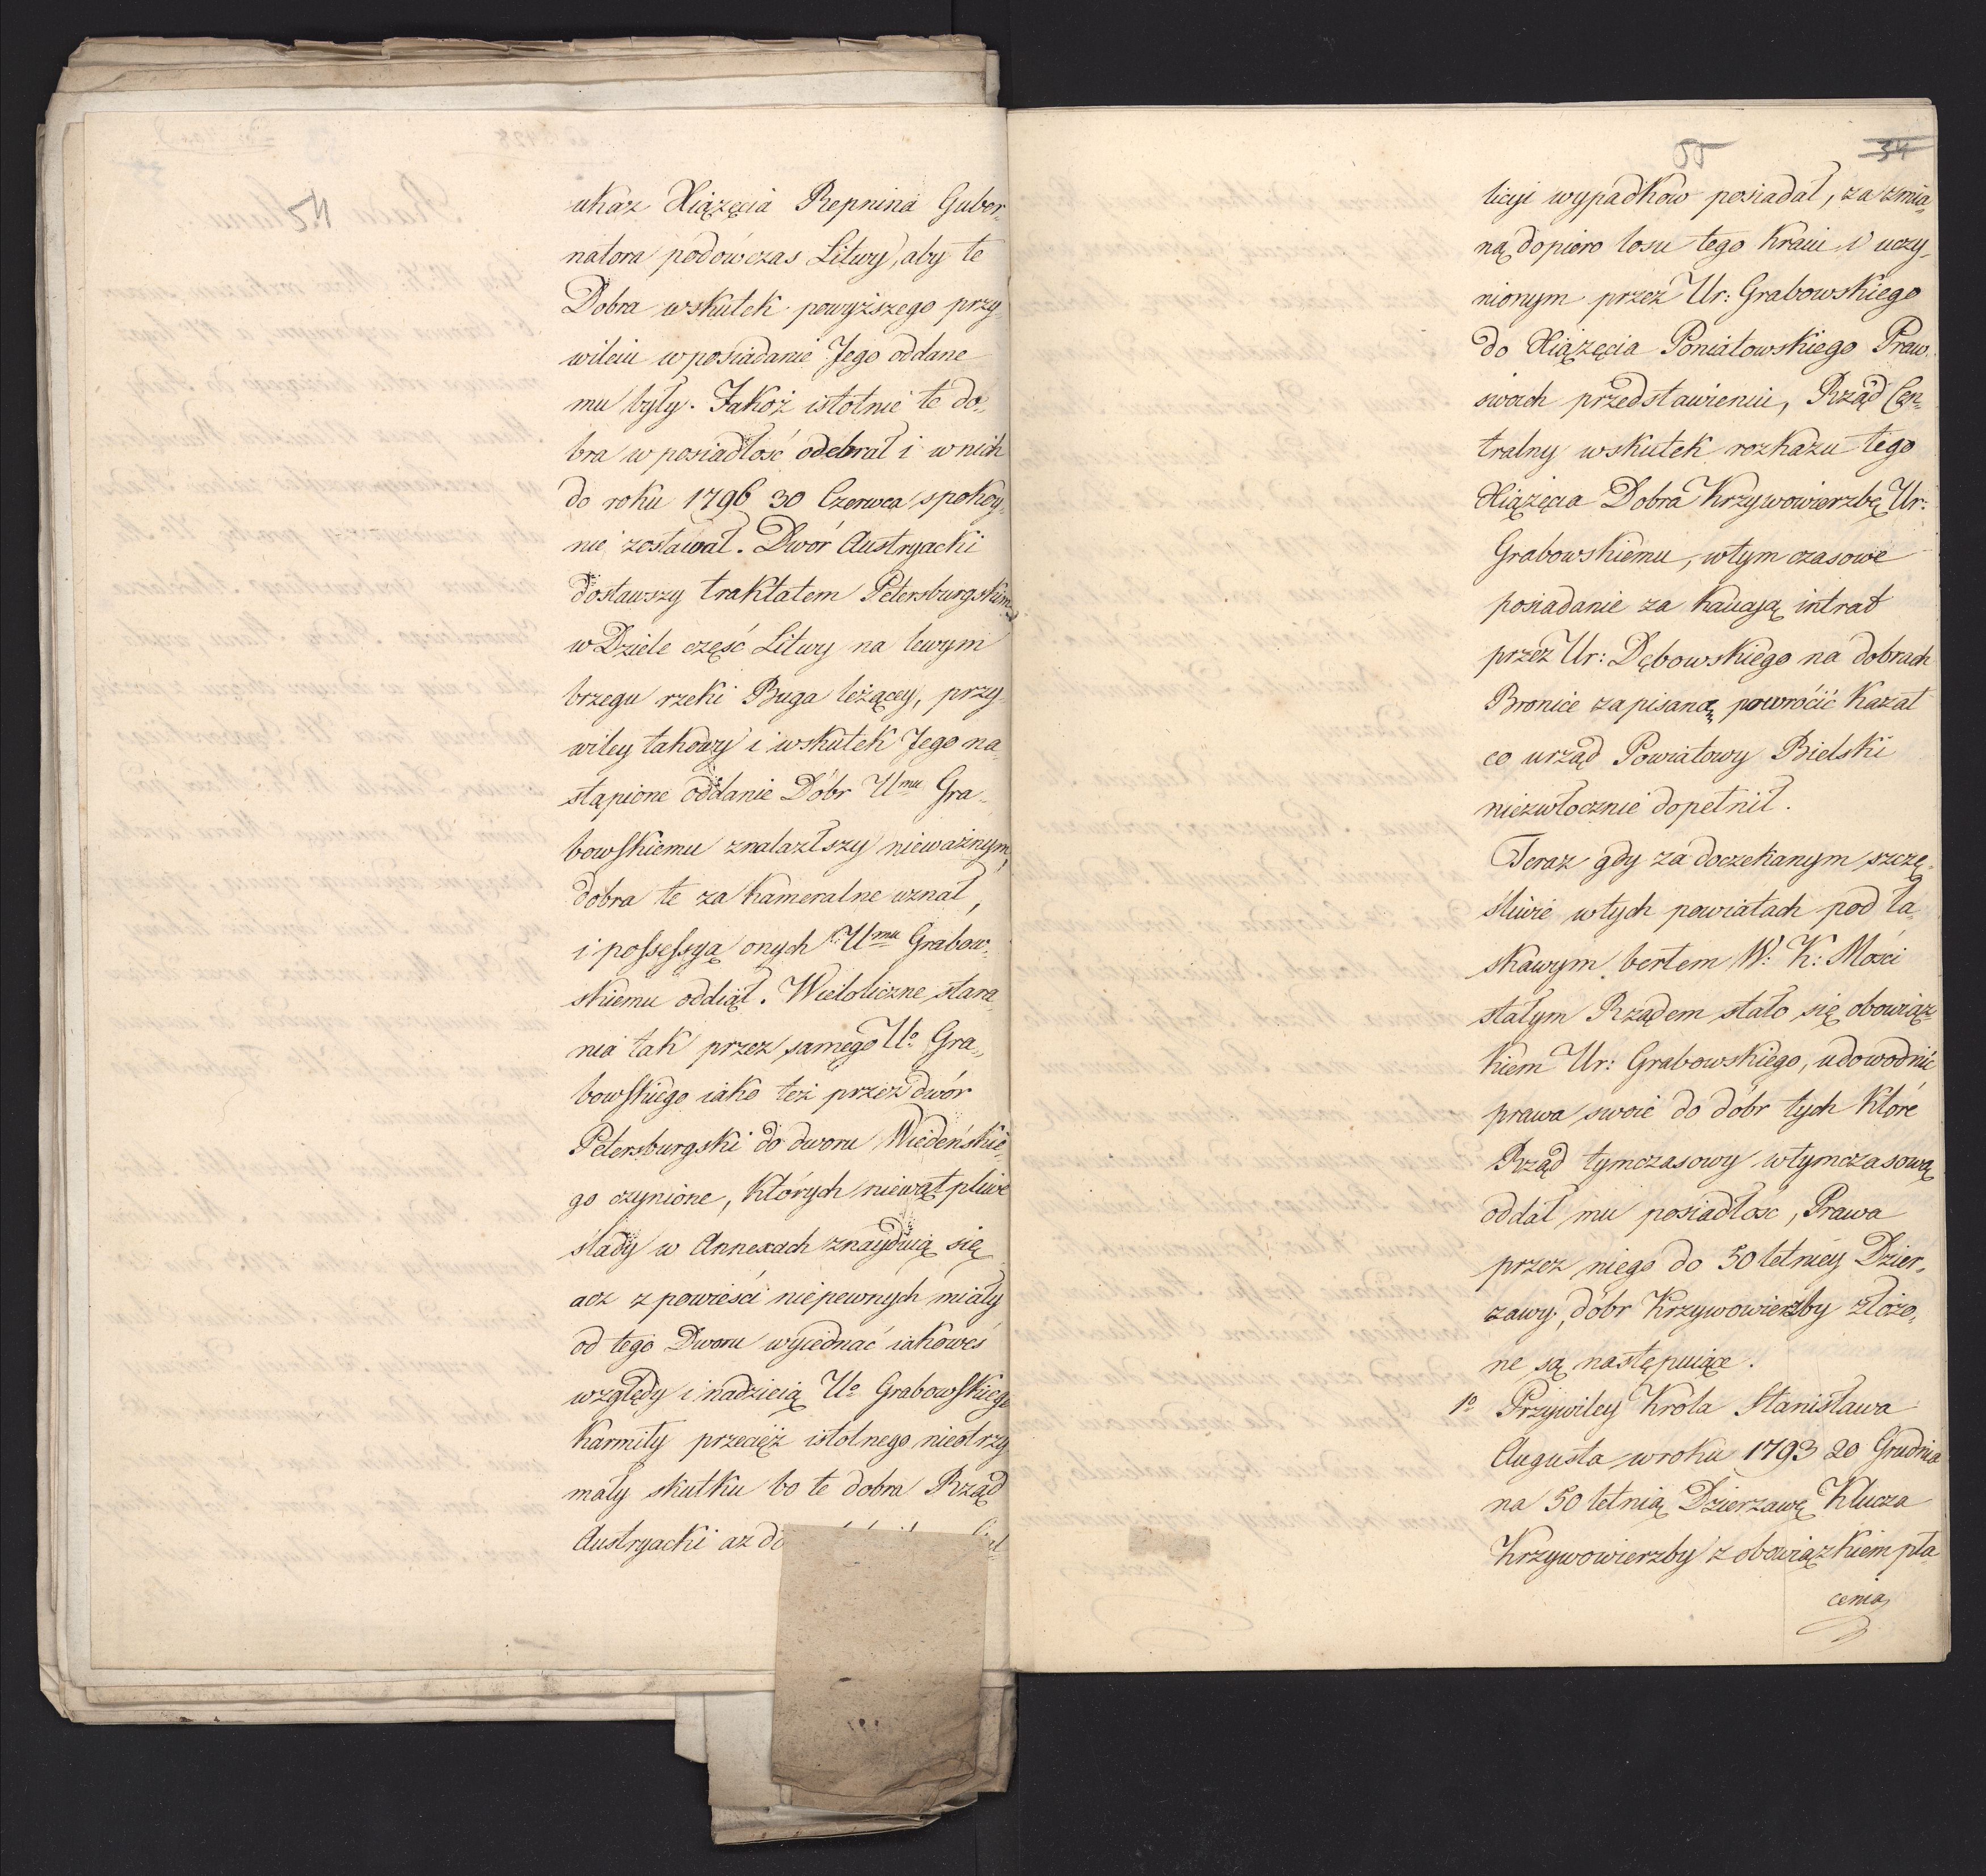 54
ukaz Xiążęcia Repnina Guber„
natora podówczas Litwy, aby te
Dobra wskutek powyższego przy„
wileiu w posiadanie Jego oddane
mu były. Jakoż istotnie te do„
bra w posiadłość odebrał i w nich
do roku 1796 30 Czerwca spokoy„
nie zostawał. Dwór Austryacki
dostawszy traktatem Petersburgskim
w Dziele część Litwy na lewym
brzegu rzeki Buga leżącey, przy„
wiley takowy i wskutek Jego na„
stąpione oddanie Dóbr Umu Gra„
bowskiemu znalazłszy nieważnym,
dobra te za kameralne uznał,
i possessyą onych Umu Grabow„
skiemu oddiął. Wieloliczne stara„
nia tak przez samego Uo Gra„
bowskiego iako też przez dwór
Petersburgski do dworu Wiedeńskie„
go czynione, których niewątpliwe
ślady w Annexach znayduią się
acz z powieści niepewnych miały
od tego Dworu wyiednać iakoweś
względy i nadzieią Uo Grabowskiego
karmiły przecięż istotnego nieotrzy„
mały skutku bo te dobra Rząd
Austryacki aż do
55 34
licyi wypadków posiadał, za zmia„
ną dopiero losu tego kraiu i uczy„
nionym przez Ur: Grabowskiego
do Xiążęcia Poniatowskiego Praw
swoich przedstawieniu, Rząd Cen„
tralny wskutek rozkazu tego
Xiążęcia Dobra Krzywowierzbę Ur:
Grabowskiemu, w tym czasowe
posiadanie za kaucyą intrat
przez Ur: Dębowskiego na dobrach
Bronice zapisaną powrócić kazał
co urząd Powiatowy Bielski
niezwłocznie dopełnił.
Teraz gdy za doczekanym szczę„
śliwie w tych powiatach pod ła„
skawym berłem W: K: Mości
stałym Rządem stało się obowiąz„
kiem Ur: Grabowskiego, udowodnić
prawa swoie do dóbr tych które
Rząd tymczasowy w tymczasową
oddał mu posiadłość, Prawa
przez niego do 50 letniey Dzier„
żawy, dóbr Krzywowierzby złożo„
ne są następuiące.
1o Przywiley Króla Stanisława
Augusta w roku 1793 20 Grudnia
na 50 letnią Dzierzawę Klucza
Krzywowierzby z obowiązkiem pła
cenia